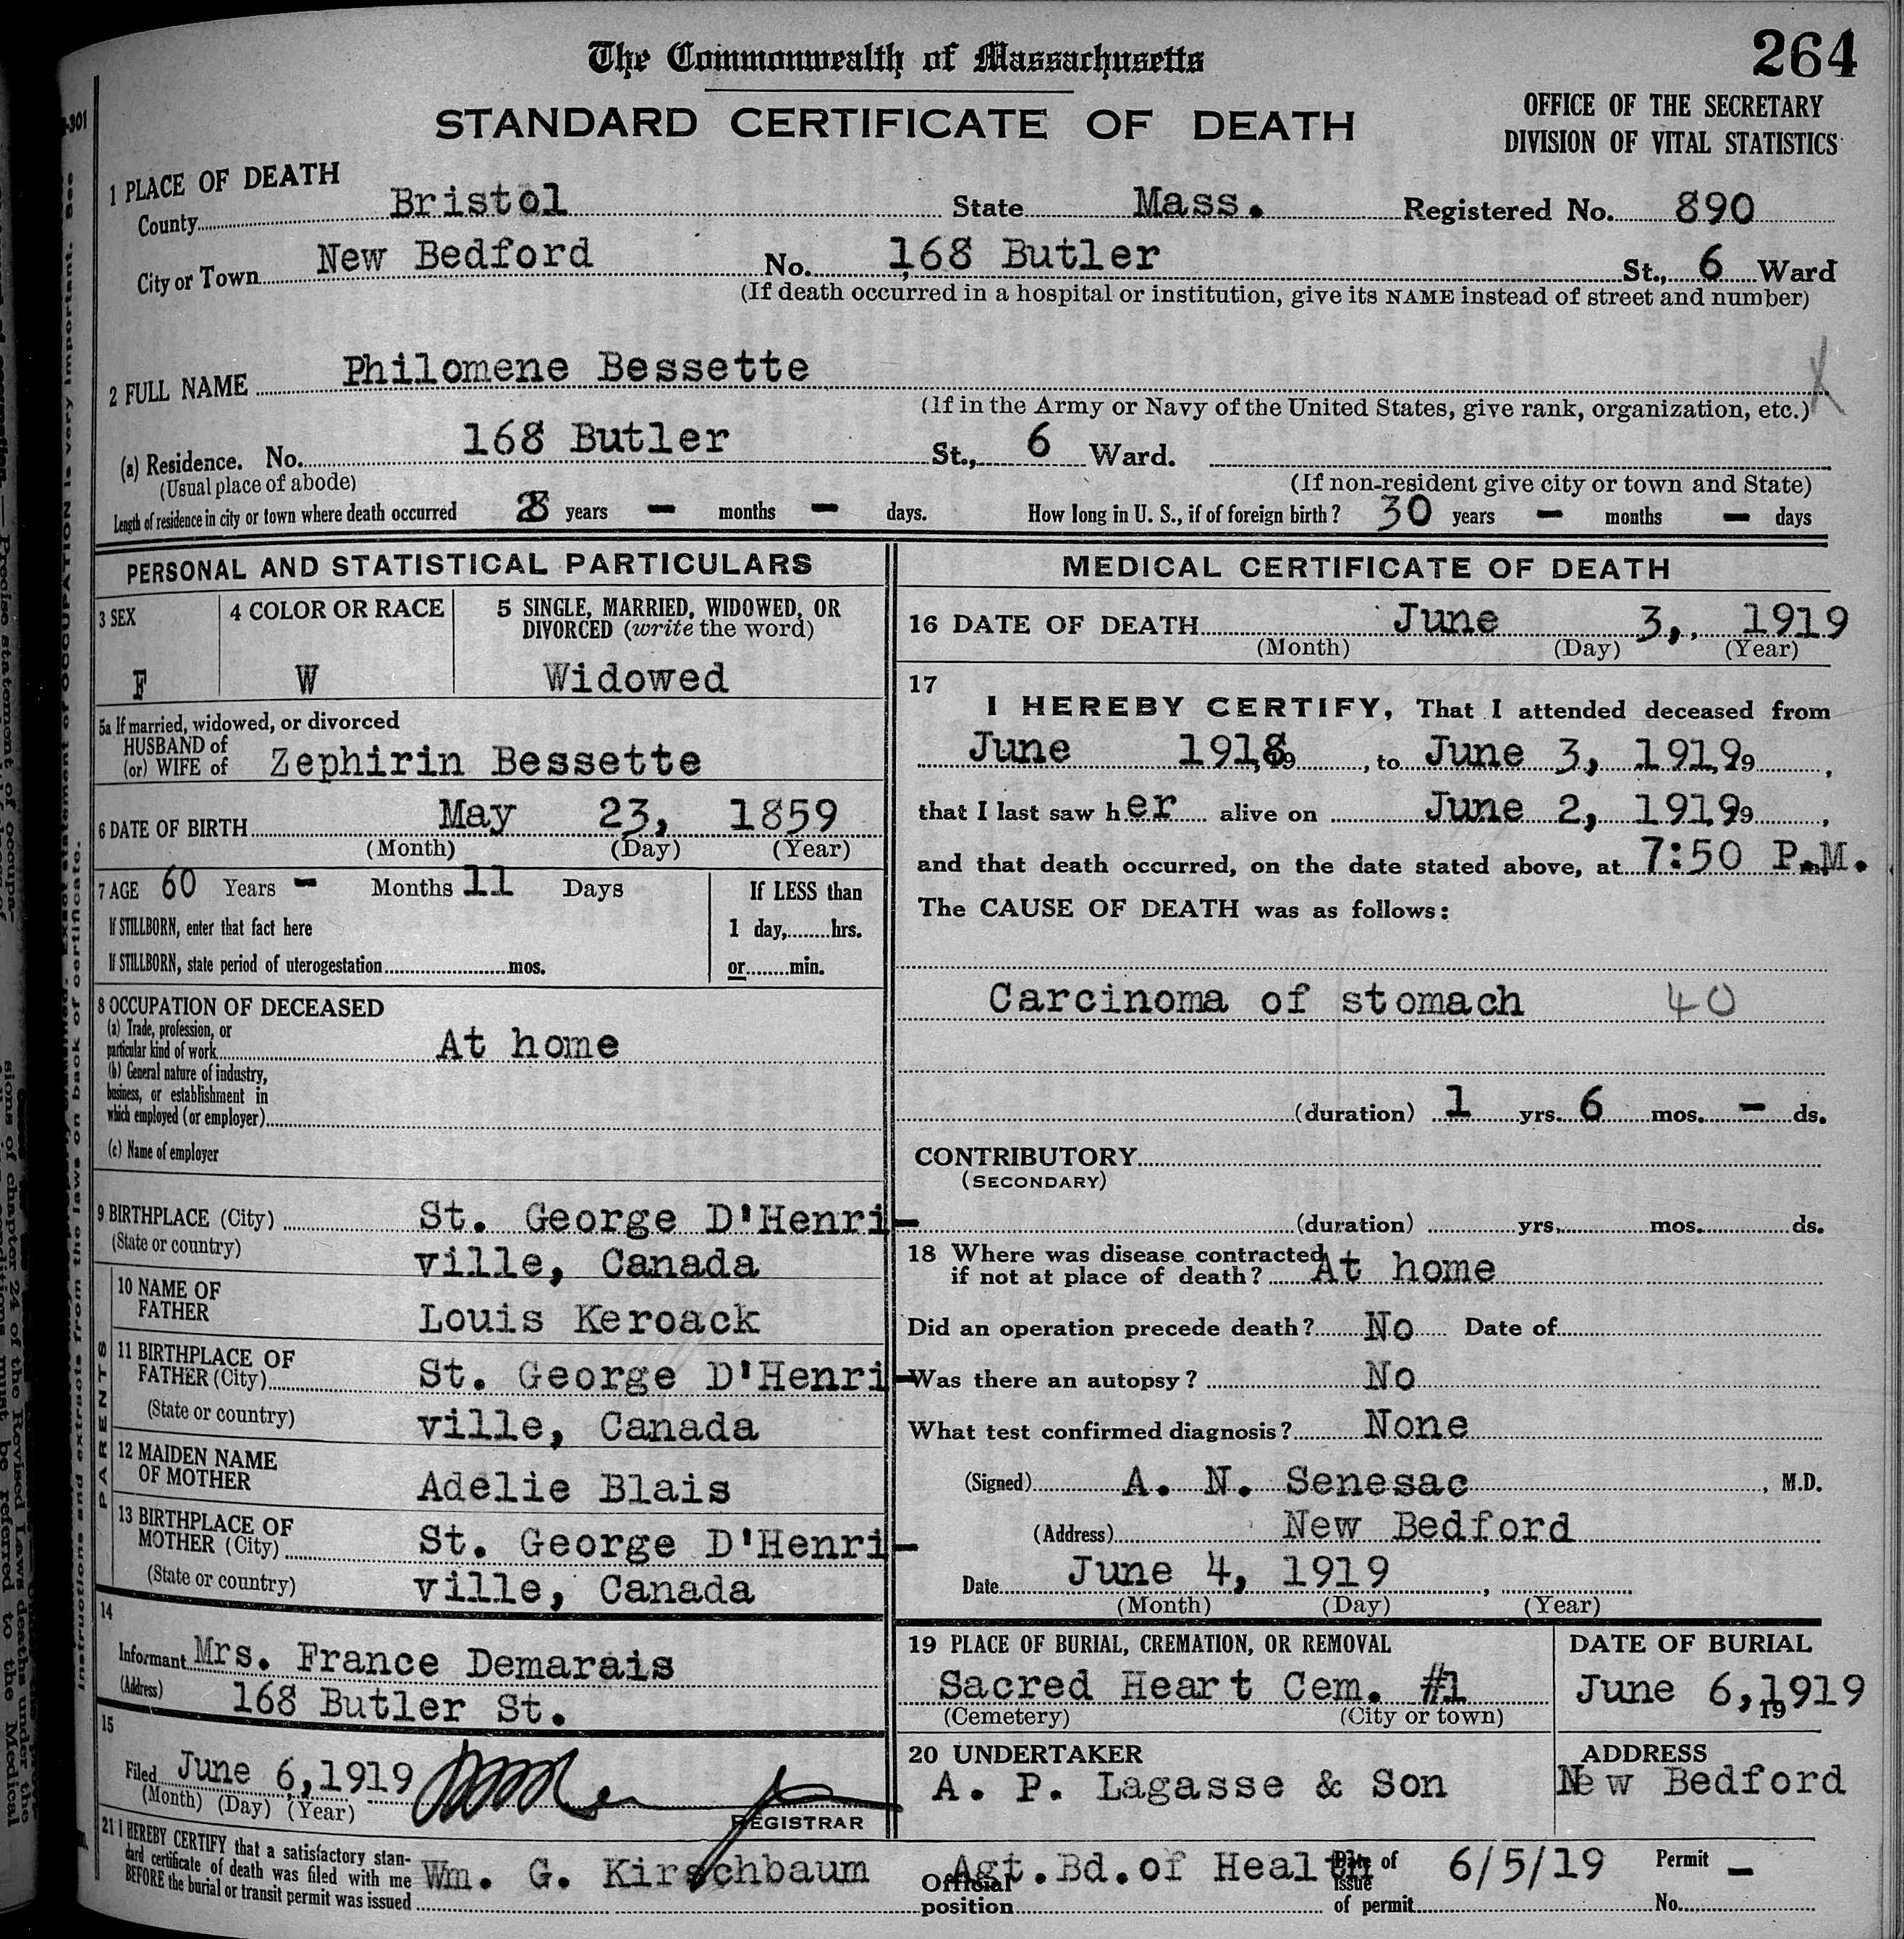 The Commonwealth of Massachusetts
264
STANDARD CERTIFICATE OF DEATH
OFFICE OF THE SECRETARY
DIVISION OF VITAL STATISTICS
1 PLACE OF DEATH
County Bristol State Mass. Registered No. 890
City or Town New Bedford No. 168 Butler St., 6 Ward
(If death occurred in a hospital or institution, give its NAME instead of street and number)
2 FULL NAME Philomene Bessette
(If in the Army or Navy of the United States, give rank, organization, etc.)
(a) Residence. No. 168 Butler St., 6 Ward.
(Usual place of abode) (If non-resident give city or town and State)
Length of residence in city or town where death occurred years - months - days. How long in U. S., if of foreign birth? 30 years - months - days
PERSONAL AND STATISTICAL PARTICULARS
3 SEX
F
4 COLOR OR RACE
W
5 SINGLE, MARRIED, WIDOWED, OR
DIVORCED (write the word)
Widowed
5a If married, widowed, or divorced
HUSBAND of
(or) WIFE of Zephirin Bessette
6 DATE OF BIRTH May 23, 1859
(Month) (Day) (Year)
7 AGE 60 Years - Months 11 Days
If STILLBORN, enter that fact here
If STILLBORN, state period of uterogestation mos.
If LESS than
1 day, hrs.
or min.
8 OCCUPATION OF DECEASED
(a) Trade, profession, or
particular kind of work At home
(b) General nature of industry,
business, or establishment in
which employed (or employer)
(c) Name of employer
9 BIRTHPLACE (City) St. George D'Henri-
(State or country) ville, Canada
PARENTS
10 NAME OF
FATHER Louis Keroack
11 BIRTHPLACE OF
FATHER (City) St. George D'Henri-
(State or country) ville, Canada
12 MAIDEN NAME
OF MOTHER Adelie Blais
13 BIRTHPLACE OF
MOTHER (City) St. George D'Henri-
(State or country) ville, Canada
14
Informant Mrs. France Demarais
(Address) 168 Butler St.
15
Filed June 6, 1919
(Month) (Day) (Year)
REGISTRAR
MEDICAL CERTIFICATE OF DEATH
16 DATE OF DEATH June 3, 1919
(Month) (Day) (Year)
17
I HEREBY CERTIFY, That I attended deceased from
June 1918, to June 3, 1919,
that I last saw her alive on June 2, 1919,
and that death occurred, on the date stated above, at 7:50 P.M.
The CAUSE OF DEATH was as follows:
Carcinoma of stomach 40
(duration) 1 yrs. 6 mos. - ds.
CONTRIBUTORY
(SECONDARY)
(duration) yrs. mos. ds.
18 Where was disease contracted
if not at place of death? At home
Did an operation precede death? No Date of
Was there an autopsy? No
What test confirmed diagnosis? None
(Signed) A. N. Senesac, M.D.
(Address) New Bedford
Date June 4, 1919,
(Month) (Day) (Year)
19 PLACE OF BURIAL, CREMATION, OR REMOVAL
Sacred Heart Cem. #1
(Cemetery) (City or town)
DATE OF BURIAL
June 6, 1919
19
20 UNDERTAKER
A. P. Lagasse & Son
ADDRESS
New Bedford
21 I HEREBY CERTIFY that a satisfactory stan-
dard certificate of death was filed with me
BEFORE the burial or transit permit was issued Wm. G. Kirschbaum
Official position Agt. Bd. of Health
Date of issue of permit 6/5/19
Permit No. -